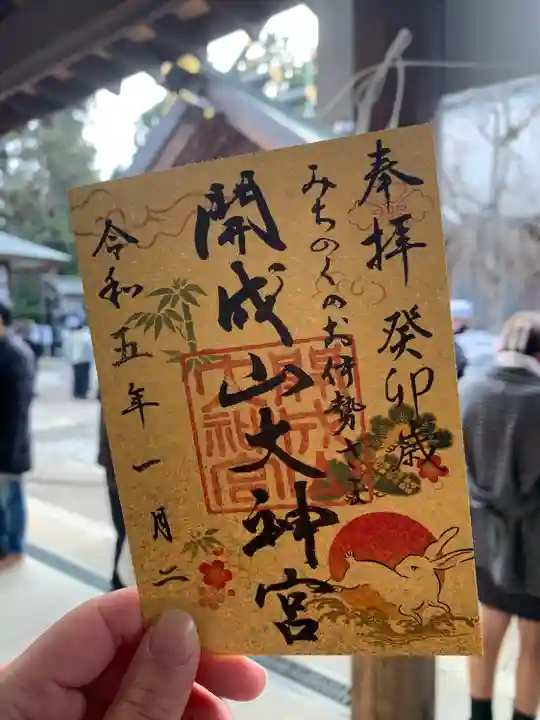 奉拝 癸卯歳
みちのくのお伊勢さま
開成山大神宮
令和五年一月二
開成山大神宮